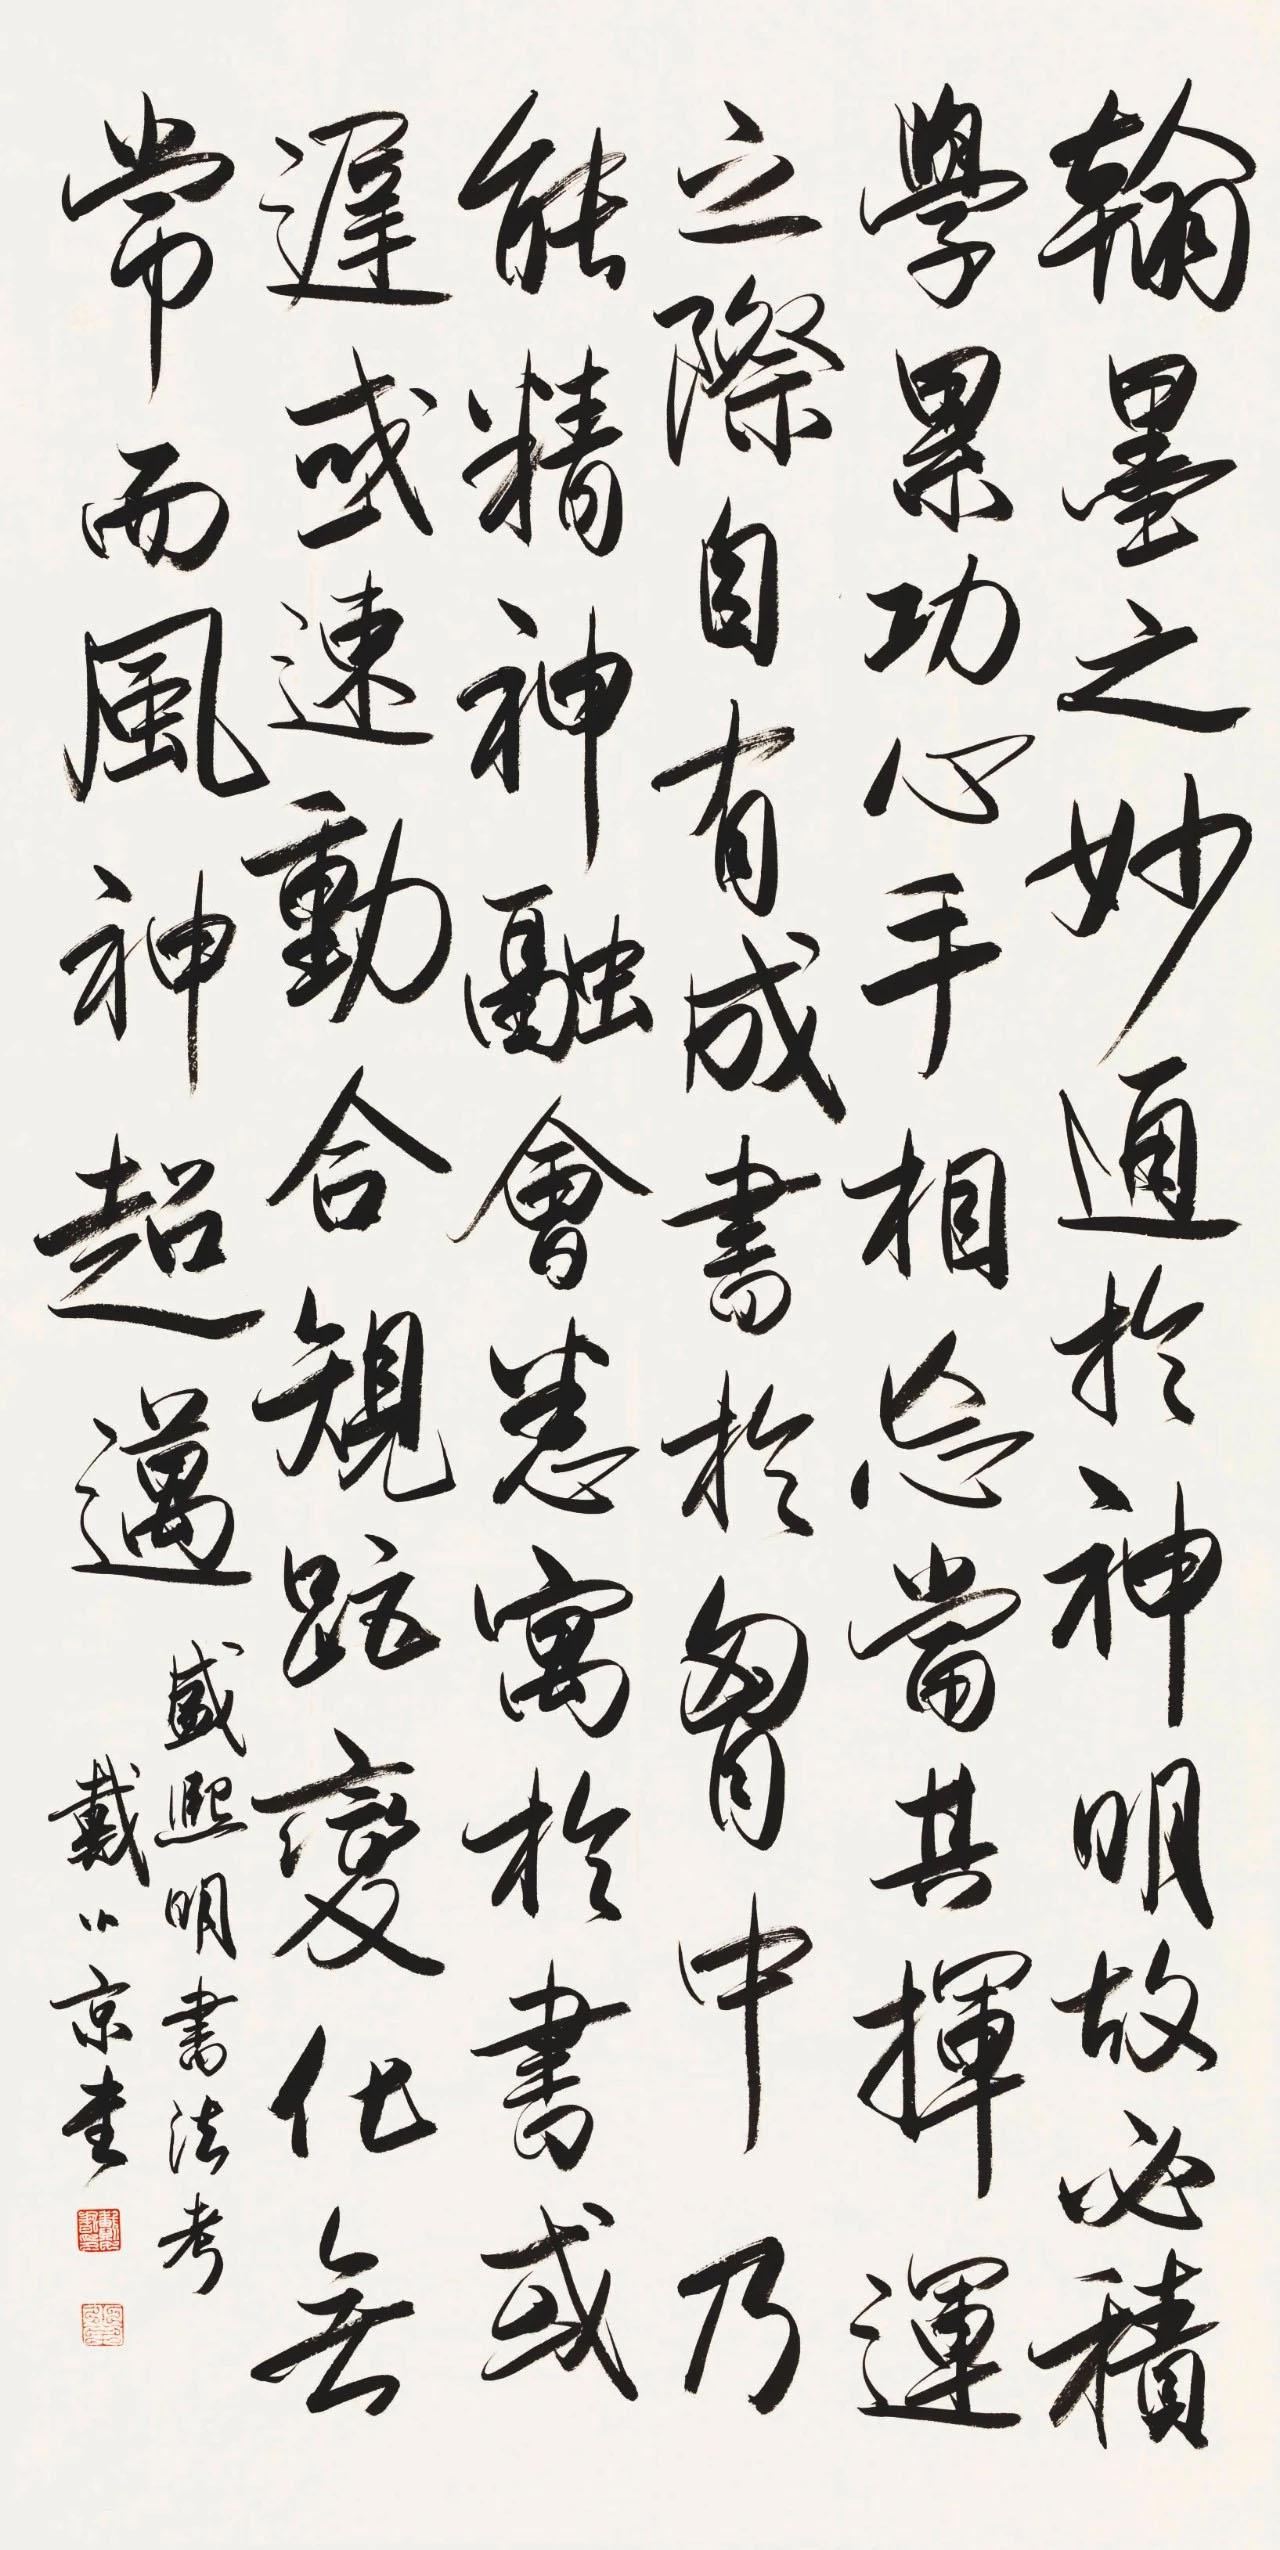 翰墨之妙通於神明故必積
學累功心手相忘當其揮運
之際自有成書於胷中乃
能精神融會悉寓於書或
遲或速動合規距變化無
常而風神超邁
盛熙明書法考
戴小京書